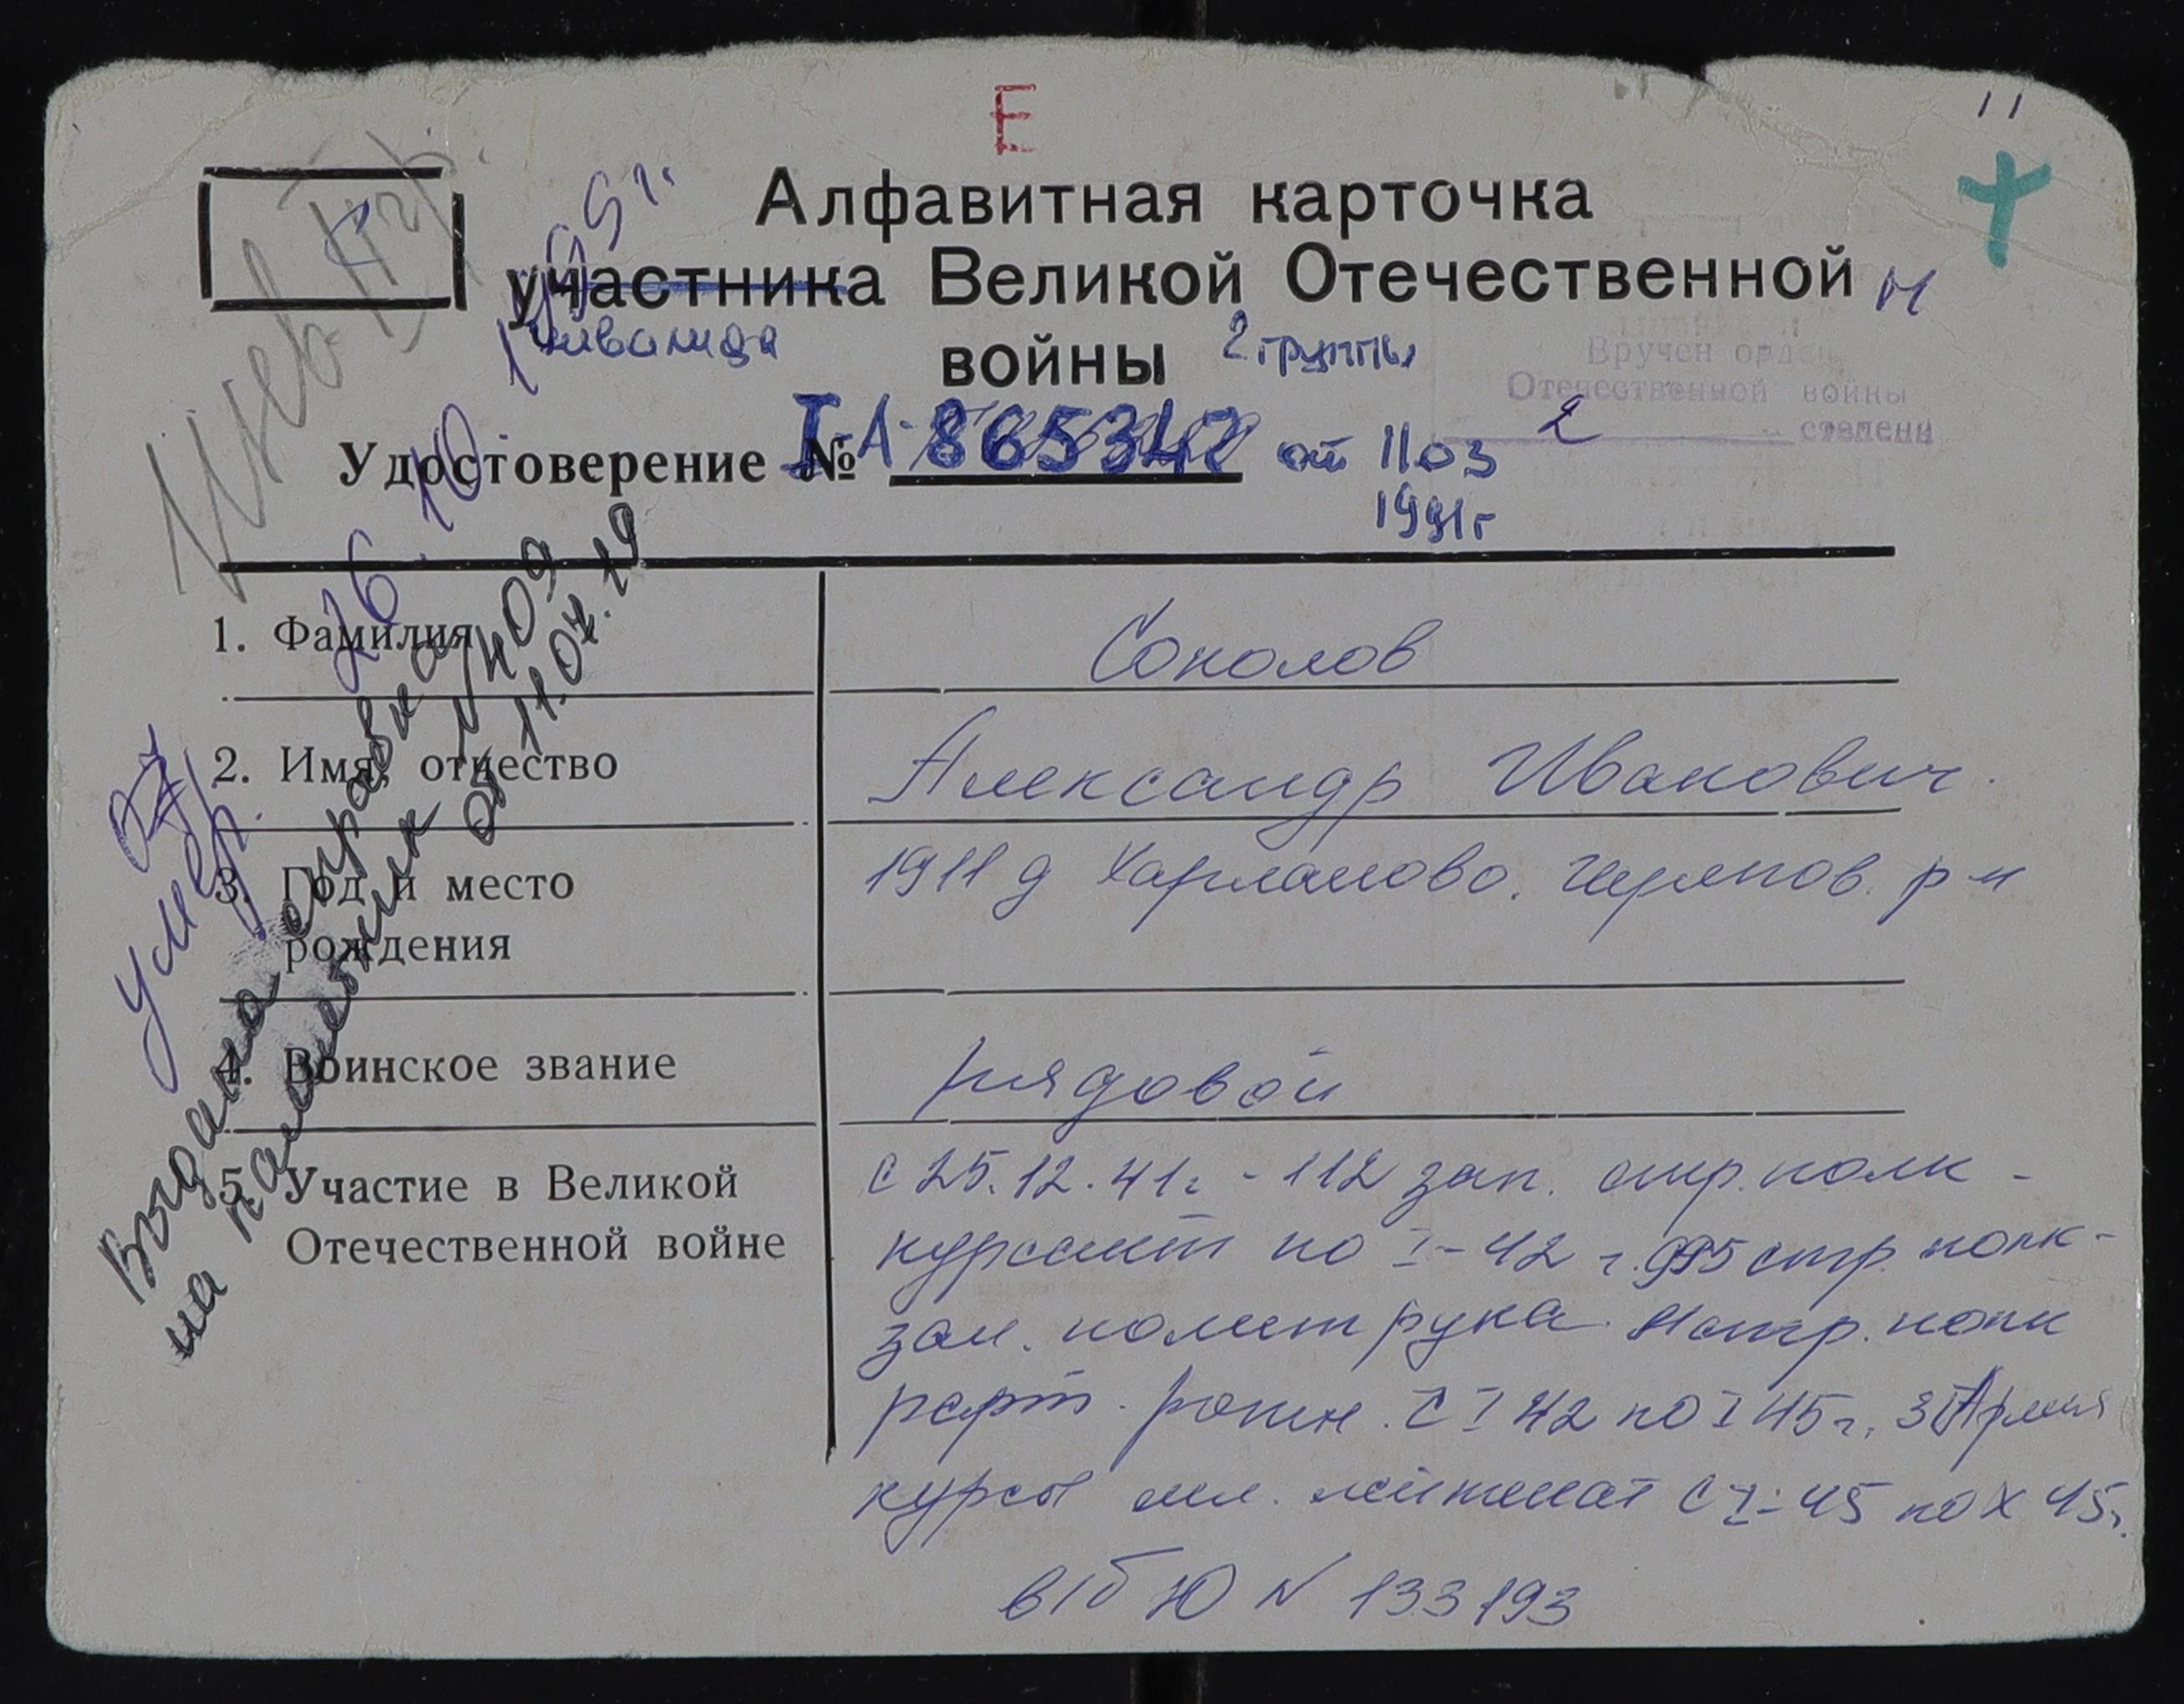 Е
11
Алфавитная карточка
участника Великой Отечественной
инвалида войны 2 группы
и
Вручен орден
Отечественной войны
2 степени
Удостоверение № I-А 865347 от 11.03
1991г
Инв. II гр.
Умер 26.10.1995г.
Выдана справка № 409
на памятник от 11.04.19
1. Фамилия Соколов
2. Имя, отчество Александр Иванович.
3. Год и место 1911 д Харламово. Черепов. р-н
рождения
4. Воинское звание рядовой
5. Участие в Великой с 25.12.41г - 112 зап. стр. полк -
Отечественной войне курсант по I-42 г. 995 стр. полк -
зам. политрука. стр. полк
с I 42 по I 45г, 3 Армия
курсы мл. лейтенат с I-45 по X 45г.
в/б Ю N 133193